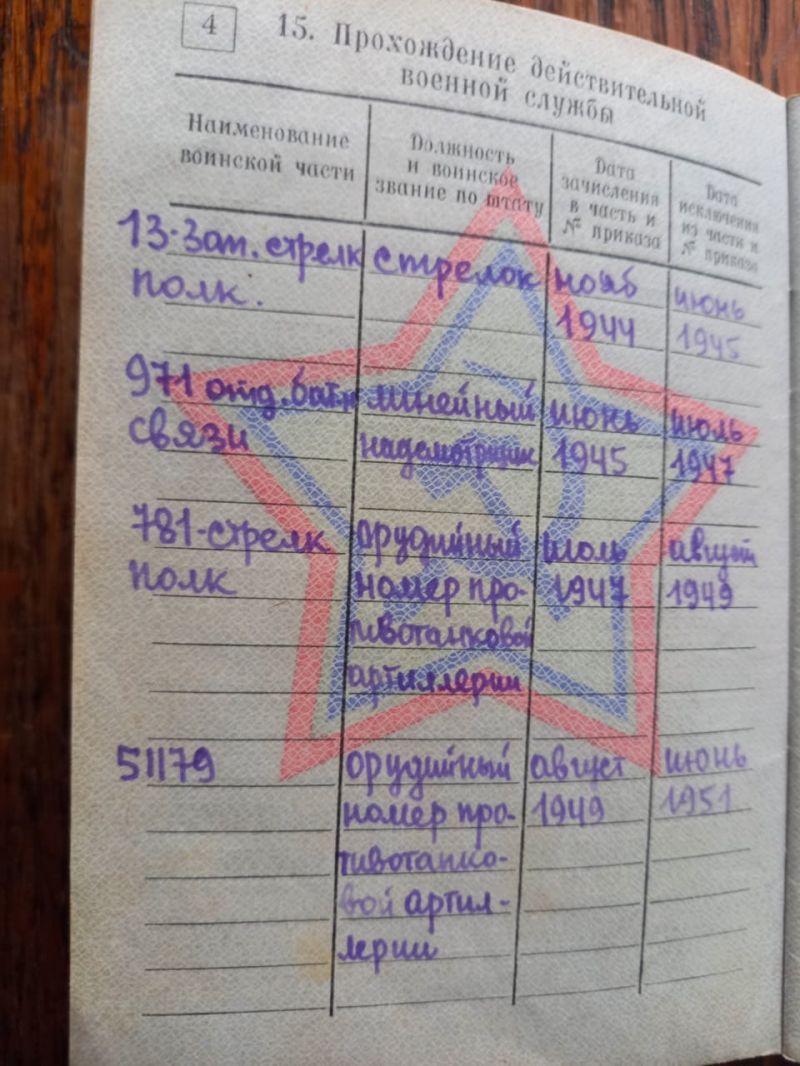 4
15. Прохождение действительной
военной службы
Наименование
воинской части
Должность
и воинское
звание по штату
Дата
зачисления
в часть и
№ приказа
Дата
исключения
из части и
№ приказа
13-Зап. стрелк
полк.
стрелок
нояб
1944
июнь
1945
971 отд. батн
связи
линейный
надсмотрщик
июнь
1945
июль
1947
781-стрелк
полк
орудийный
номер про-
тивотанковой
артиллерии
июль
1947
август
1949
51179
орудийный
номер про-
тивотанко-
вой артил-
лерии
август
1949
июнь
1951